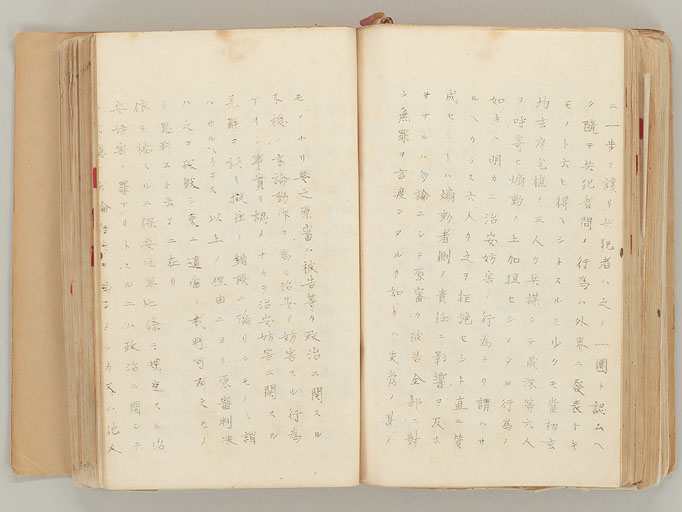 ニ一歩ヲ譲リ共犯者ハ之ノ一團ト認ムヘ
ク隨テ共犯者間ノ行為ハ外界ニ發表トキ
モノト大ト得ミシトスルモ少クモ當初玄
均玄座宅植ノ三人ヲ共謀シテ成深等六人
ヲ呼寄セ煽動ノ上加担セシメタル行為ノ
如キハ明カニ治安妨害ノ行為ナリ謂ハサ
ルヘクシス六人ク之ヲ拒絶セント直ニ賛
成セシトハ煽動者側ノ責任ニ影響ヲ及ホ
ササルハ勿論ニシテ原審カ被告全部ニ對
シ無罪ヲ言渡シタルカ如キハ失當ノ甚シ
モノナリ要之原審ハ被告等カ政治ニ関スル
不穏ノ言論動作ヲ為シ治安ヲ妨害スル行為
アリシ事實ヲ認メナカラ治安妨害ニ関スル
見解ヲ誤リ擬律ノ錯誤ニ陥リシモノト謂
ハサルヘカラス以上ノ理由ニヨリ原審判決
ハ之ヲ破毀シ更ニ適當ノ裁判可有之モノ
ト思料スト云フニ在リ
依テ按スルニ保安法第七條ニ規定スル治
安妨害ノ罪アリトスルニハ政治ニ関シテ
不穏ノ言論動作ヲ為シ